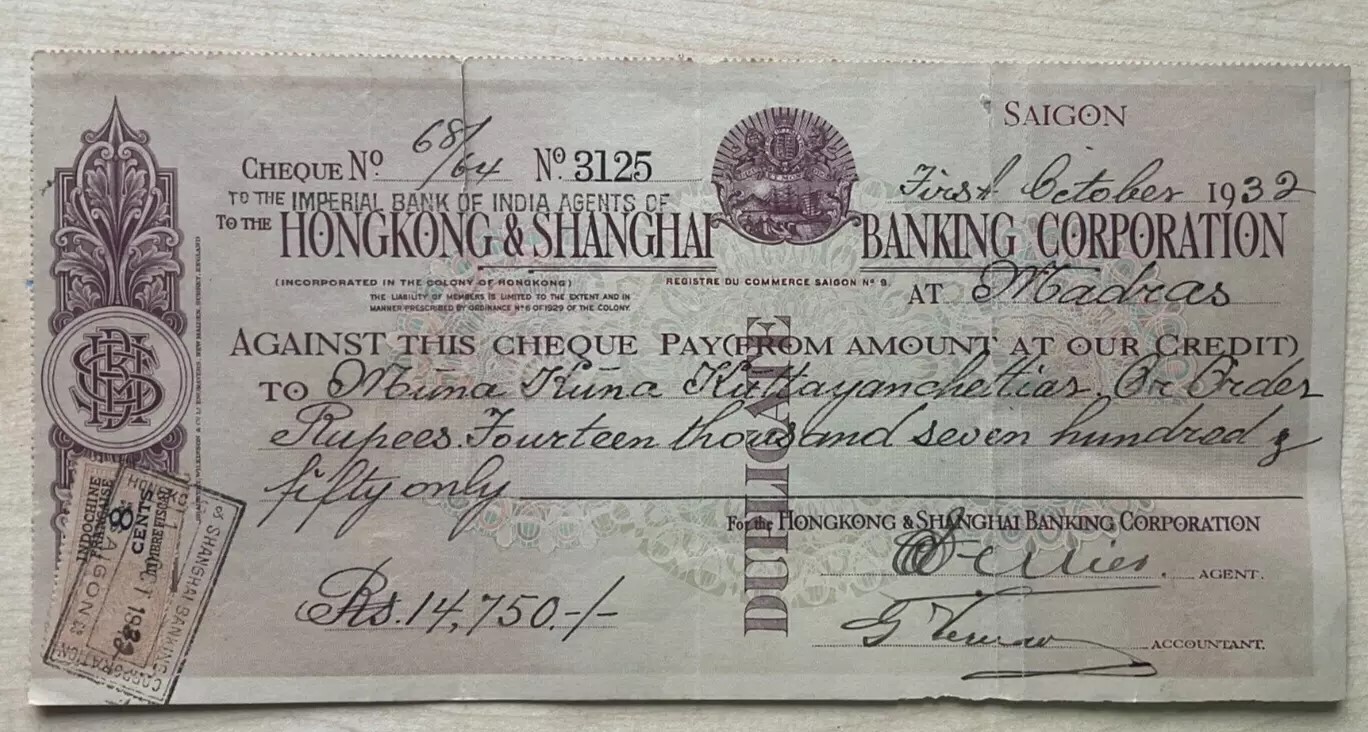 SAIGON
CHEQUE Nº 68/64 Nº 3125
First October 1932
TO THE IMPERIAL BANK OF INDIA AGENTS OF
TO THE HONGKONG & SHANGHAI BANKING CORPORATION
(INCORPORATED IN THE COLONY OF HONGKONG)
REGISTRE DU COMMERCE SAIGON Nº 9.
THE LIABILITY OF MEMBERS IS LIMITED TO THE EXTENT AND IN
MANNER PRESCRIBED BY ORDINANCE Nº 6 OF 1929 OF THE COLONY.
AT Madras
AGAINST THIS CHEQUE PAY (FROM AMOUNT AT OUR CREDIT)
TO Muna Kuna Kuttayanchettiar. Or Order
Rupees. Fourteen thousand seven hundred &
fifty only
DUPLICATE
For the HONGKONG & SHANGHAI BANKING CORPORATION
AGENT.
Rs. 14,750.-/-
ACCOUNTANT.
INDOCHINE
FRANÇAISE
8
CENTS
SAIGON
& SHANGHAI BANKING
CORPORATION